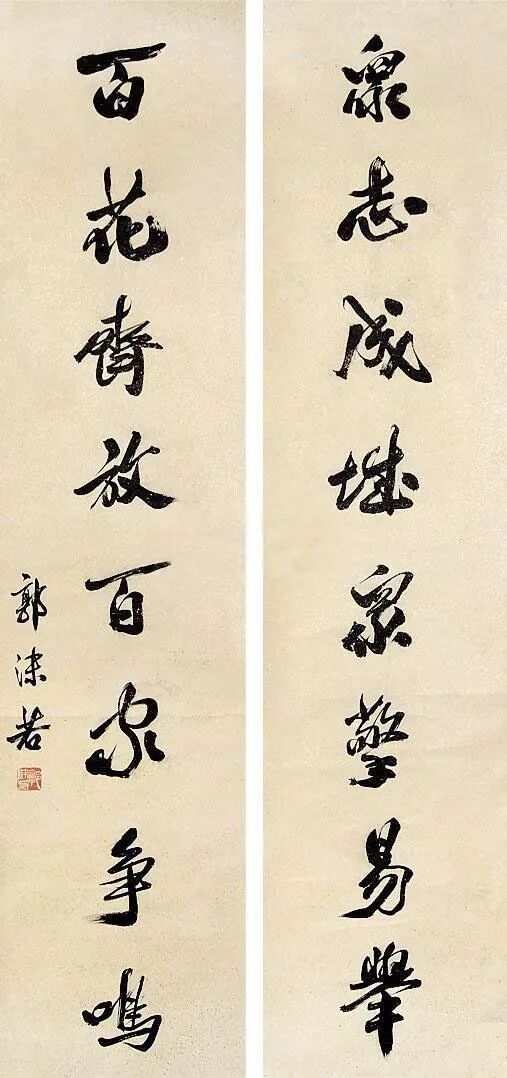 衆志成城衆擎易舉
百花齊放百家争鳴
郭沫若